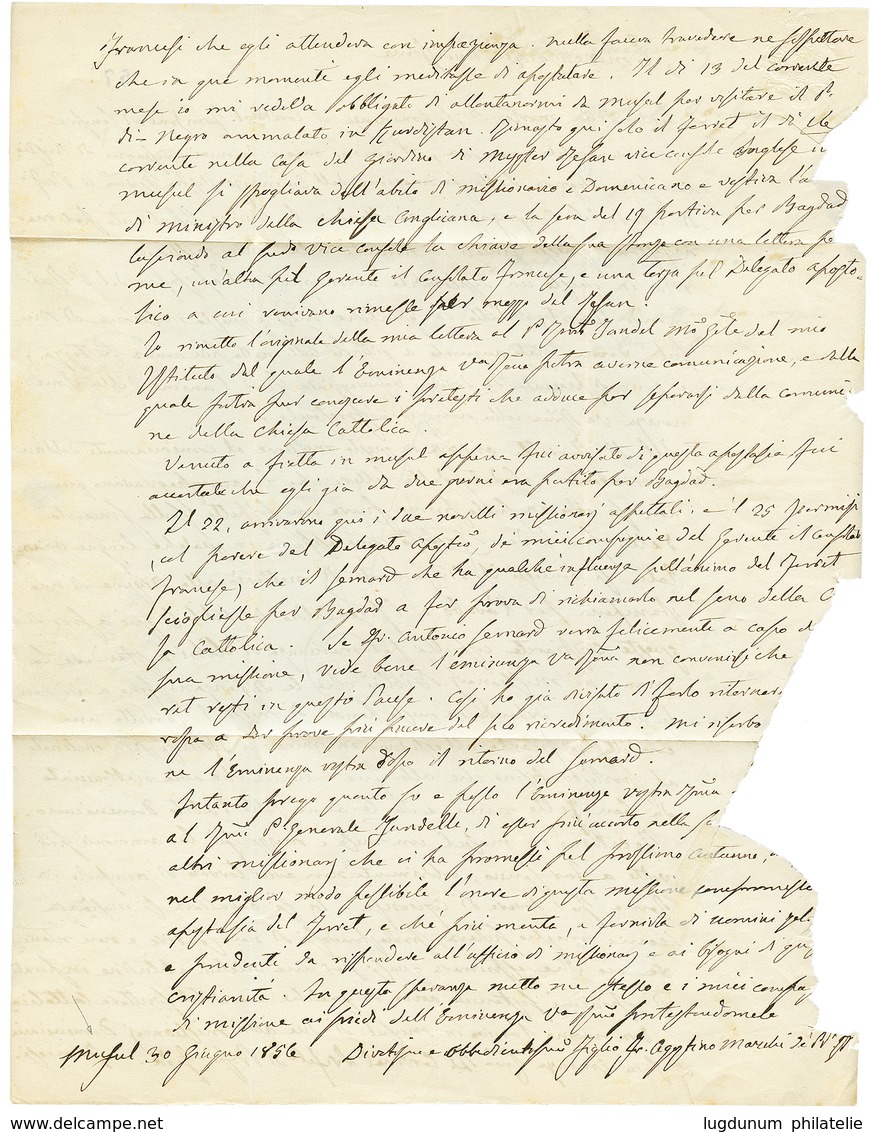 Francesi che egli attendeva con impazienza. nulla faceva travedere ne sospettare
che in que momenti egli meditasse di apostatare. Il di 13 del corrente
mese io mi vedeva obbligato di allontanarmi da Musul per visitare il P.
di Negro ammalato in Kurdistan. Rimasto qui solo il Ferret il di 16
corrente nella casa del giardino di Myster Resan vice console Inglese in
musul si spogliava dell'abito di missionario e Domenicano e vestiva l'a
di ministro della chiesa Anglicana, e la sera del 19 partiva per Bagdad
lasciando al sudo vice console la chiave della sua stanza con una lettera pe
me, un'altra pel gerente il consolato Francese, e una terza pel Delegato aposto=
lico a cui venivano rimesse per mezzo del Resan.
Io rimetto l'originale della mia lettera al P. Jandel Mo Gle del mio
Istituto dal quale l'Eminenza Va Rma potra averne comunicazione, e dalla
quale potra pur conoscere i pretesti che adduce per separarsi dalla comuni
ne della Chiesa Cattolica.
Venuto a fretta in musul appena fui avvisato di questa apostasia fui
accertato che egli gia da due giorni era partito per Bagdad.
Il 22, arrivarono qui i due novelli missionarj aspettati. e il 25 permisi
, col parere del Delegato Aposto, dei miei compagni e del Gerente il Consolato
francese, che il Lemard che ha qualche influenza sull'animo del Ferret
sciogliesse per Bagdad a far prova di richiamarlo nel seno della C
sa Cattolica. Se Fr. Antonio Lemard verra felicemente a capo d
sua missione, vede bene l'eminenza Va Rma non convenirsi che
ret resti in questo Paese. Cosi ho gia divisato di farlo ritornar
ropa a dar prove piu sicure del suo ricredimento. Mi riserbo
ne l'Eminenza vostra dopo il ritorno del Lemard.
Intanto prego quanto so e posso l'Eminenza vostra Rma
al Rmo P. Generale Jandelle, di esser piu accorto nella sc
altri missionarj che ci ha promessi pel prossimo autunno,
nel miglior modo possibile l'onore di questa missione compromesso
apostasia del Ferret, e che piu monta, a fornirla di uomini zel
e prudenti da rispondere all'ufficio di missionarj e ai bisogni di que
cristianità. In questa speranza metto me stesso e i miei compag
di missione ai piedi dell'Eminenza Va Rma protestandomele
Musul 30 Giugno 1856 Divotissmo e obbedientissmo figlio Fr. Agostino Marchi de' P.
www.delcampe.net
lugdunum philatelie